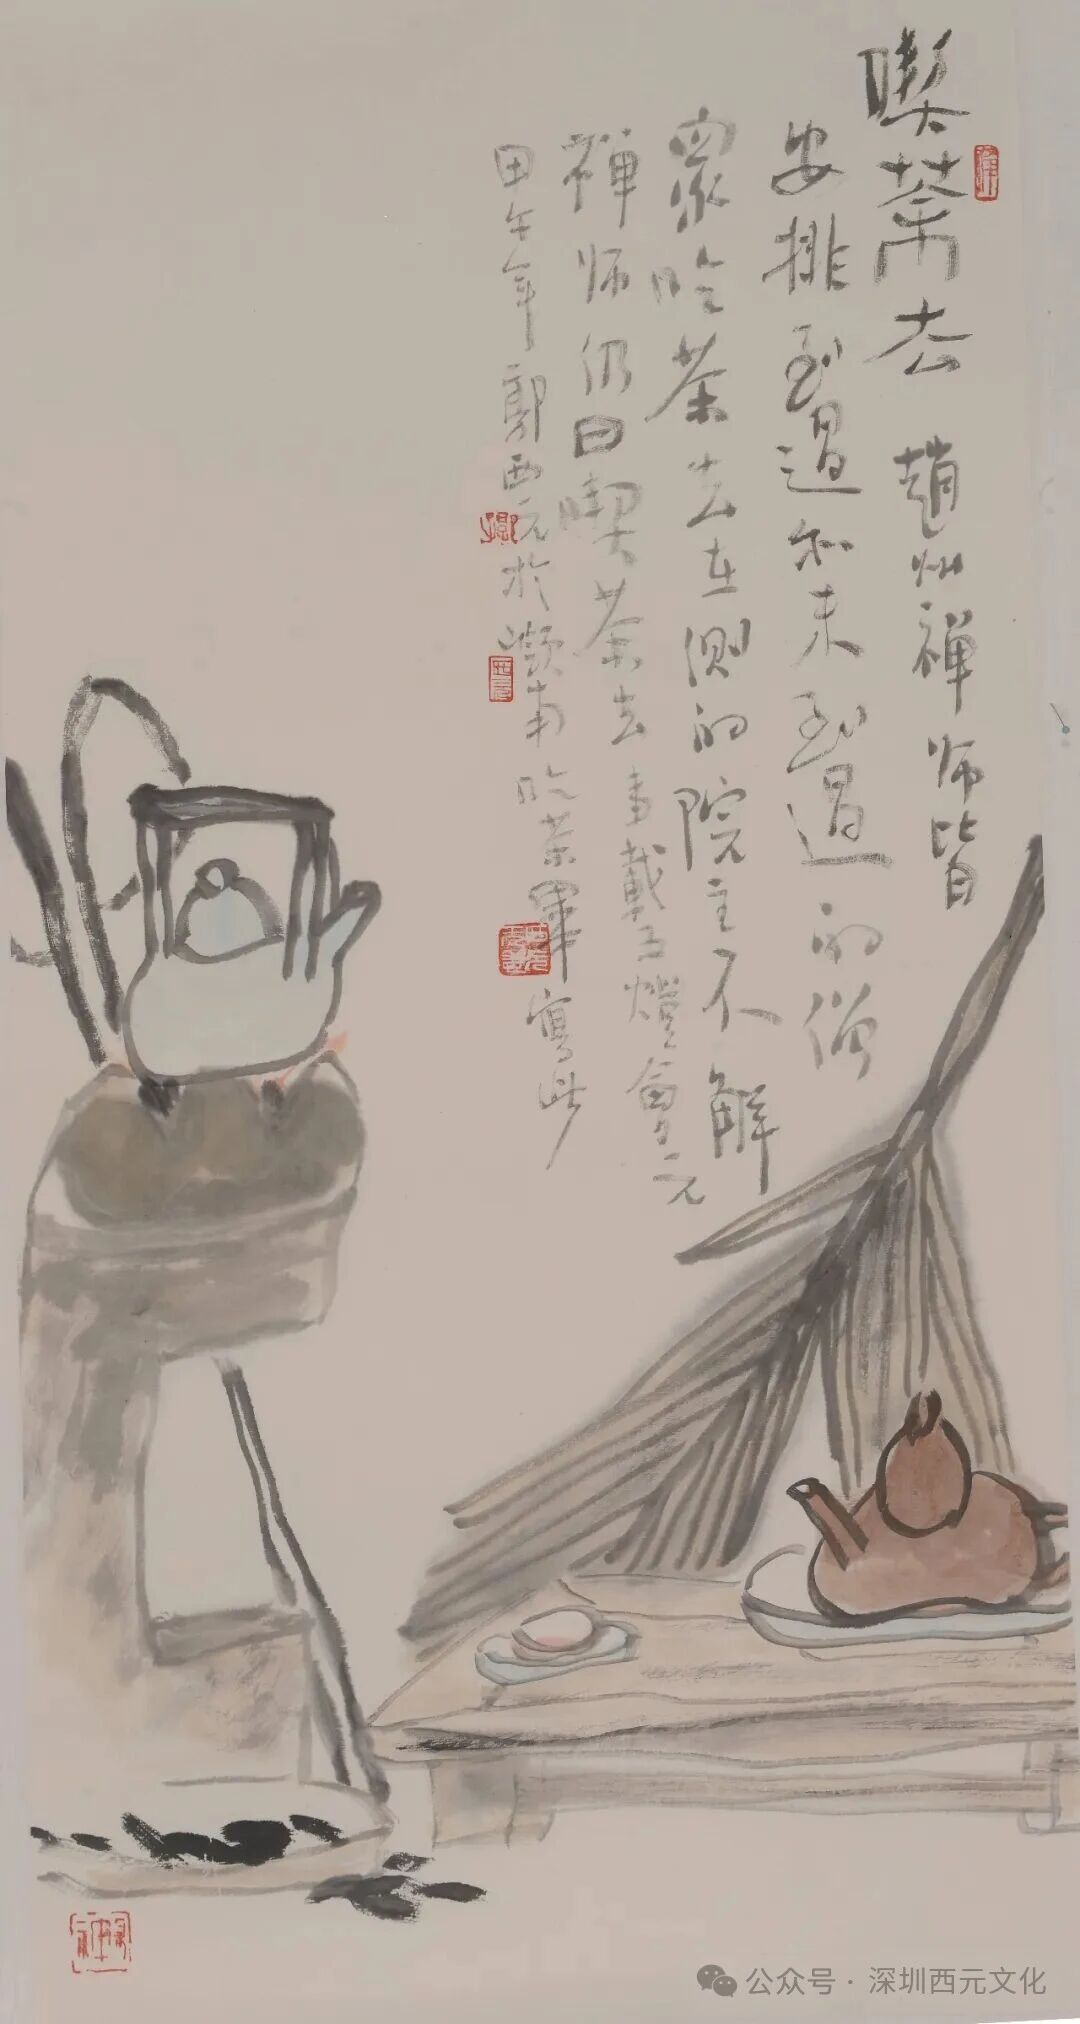 喫茶去 趙州禪師皆
安排到過和未到過的僧
眾吃茶去在側的院主不解
禪師仍曰喫茶去 事載五燈會元
甲午年郭西元於嶺南吃茶畢寫此
公众号 · 深圳西元文化